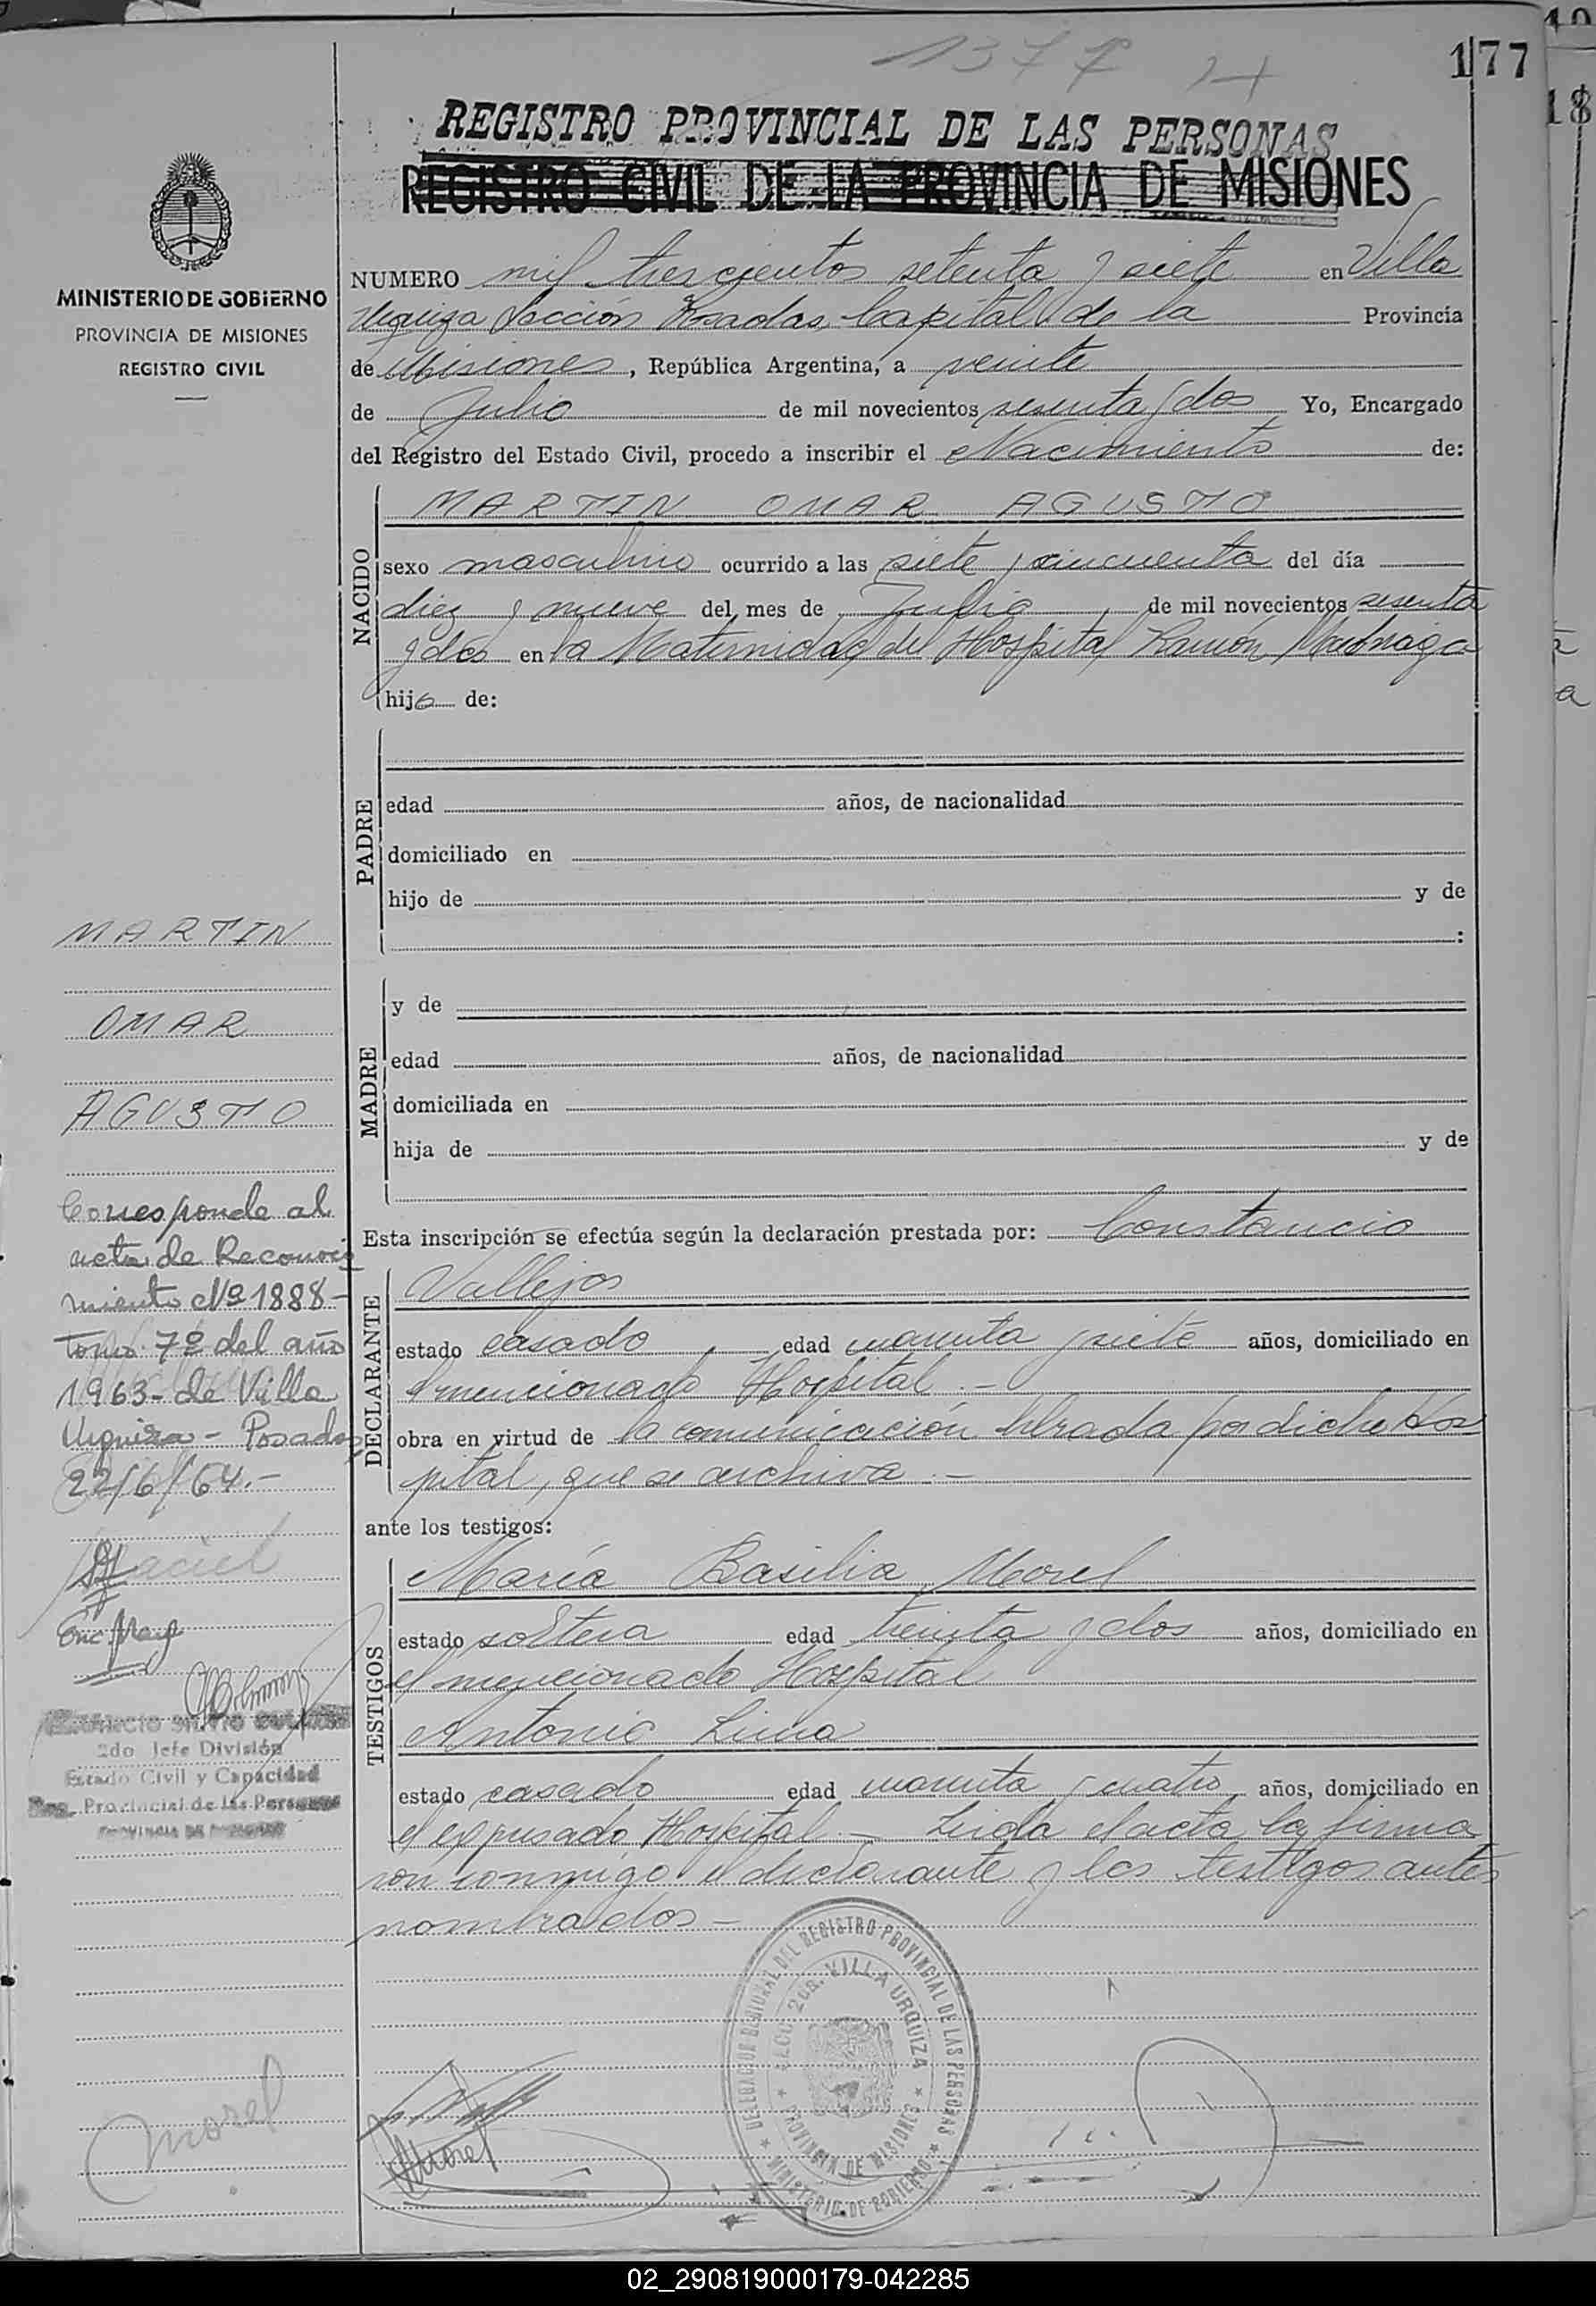 1377
177
REGISTRO PROVINCIAL DE LAS PERSONAS
REGISTRO CIVIL DE LA PROVINCIA DE MISIONES
MINISTERIO DE GOBIERNO
PROVINCIA DE MISIONES
REGISTRO CIVIL
NUMERO mil trescientos setenta y siete en Villa
Urquiza Sección Posadas Capital de la Provincia
de Misiones, República Argentina, a veinte
de Julio de mil novecientos sesenta y dos Yo, Encargado
del Registro del Estado Civil, procedo a inscribir el Nacimiento de:
NACIDO
MARTIN OMAR AGUSTO
sexo masculino ocurrido a las siete y cincuenta del día
diez y nueve del mes de Julio de mil novecientos sesenta
y dos en la Maternidad del Hospital Ramón Madariaga
hijo de:
PADRE
edad años, de nacionalidad
domiciliado en
hijo de y de
:
MADRE
y de
edad años, de nacionalidad
domiciliada en
hija de y de
Esta inscripción se efectúa según la declaración prestada por: Constancio
DECLARANTE
Vallejos
estado casado edad cuarenta y siete años, domiciliado en
el mencionado Hospital.-
obra en virtud de la comunicación librada por dicho Hos
pital, que se archiva.-
ante los testigos:
TESTIGOS
María Basilia Morel
estado soltera edad treinta y dos años, domiciliado en
el mencionado Hospital
Antonio Lima
estado casado edad cuarenta y cuatro años, domiciliado en
el expresado Hospital.- Leida el acta la firma
ron conmigo el declarante y los testigos antes
nombrados-
MARTIN
OMAR
AGUSTO
Corresponde al
acta de Reconoci
miento Nº 1888-
Tomo 7º del año
1963- de Villa
Urquiza - Posadas
22/6/64.-
Maciel
2do Jefe División
Estado Civil y Capacidad
Reg. Provincial de las Personas
PROVINCIA DE MISIONES
DELEGACION REGIONAL DEL REGISTRO PROVINCIAL DE LAS PERSONAS
SECC. 2da. VILLA URQUIZA
PROVINCIA DE MISIONES
MINISTERIO DE GOBIERNO
Morel
Morel
02_290819000179-042285